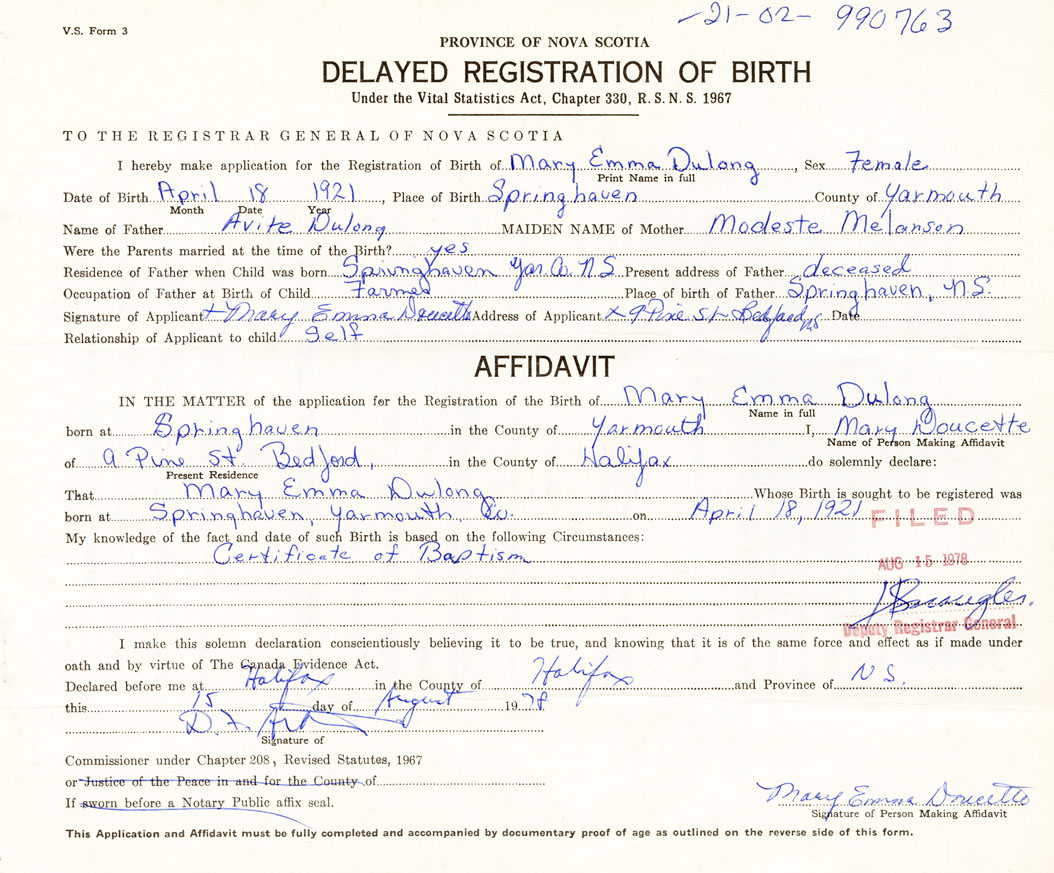 21-02-990763
V.S. Form 3
PROVINCE OF NOVA SCOTIA
DELAYED REGISTRATION OF BIRTH
Under the Vital Statistics Act, Chapter 330, R.S.N.S. 1967
TO THE REGISTRAR GENERAL OF NOVA SCOTIA
I hereby make application for the Registration of Birth of Mary Emma Dulong, Sex Female
Print Name in full
Date of Birth April 18 1921, Place of Birth Springhaven County of Yarmouth
Month Date Year
Name of Father Avite Dulong MAIDEN NAME of Mother Modeste Melanson
Were the Parents married at the time of the Birth? yes
Residence of Father when Child was born Springhaven Yar. Co. N.S. Present address of Father deceased
Occupation of Father at Birth of Child Farmer Place of birth of Father Springhaven, N.S.
Signature of Applicant x Mary Emma Doucette Address of Applicant x 9 Pine St Bedford NS Date
Relationship of Applicant to child Self
AFFIDAVIT
IN THE MATTER of the application for the Registration of the Birth of Mary Emma Dulong
Name in full
born at Springhaven in the County of Yarmouth I, Mary Doucette
Name of Person Making Affidavit
of 9 Pine St. Bedford, in the County of Halifax do solemnly declare:
Present Residence
That Mary Emma Dulong Whose Birth is sought to be registered was
born at Springhaven, Yarmouth, Co. on April 18, 1921
FILED
My knowledge of the fact and date of such Birth is based on the following Circumstances:
Certificate of Baptism
AUG 15 1978
Deputy Registrar General
I make this solemn declaration conscientiously believing it to be true, and knowing that it is of the same force and effect as if made under
oath and by virtue of The Canada Evidence Act.
Declared before me at Halifax in the County of Halifax and Province of N.S.
this 15 day of August 1978
D. F.
Signature of
Commissioner under Chapter 208, Revised Statutes, 1967
or Justice of the Peace in and for the County of
If sworn before a Notary Public affix seal.
Mary Emma Doucette
Signature of Person Making Affidavit
This Application and Affidavit must be fully completed and accompanied by documentary proof of age as outlined on the reverse side of this form.